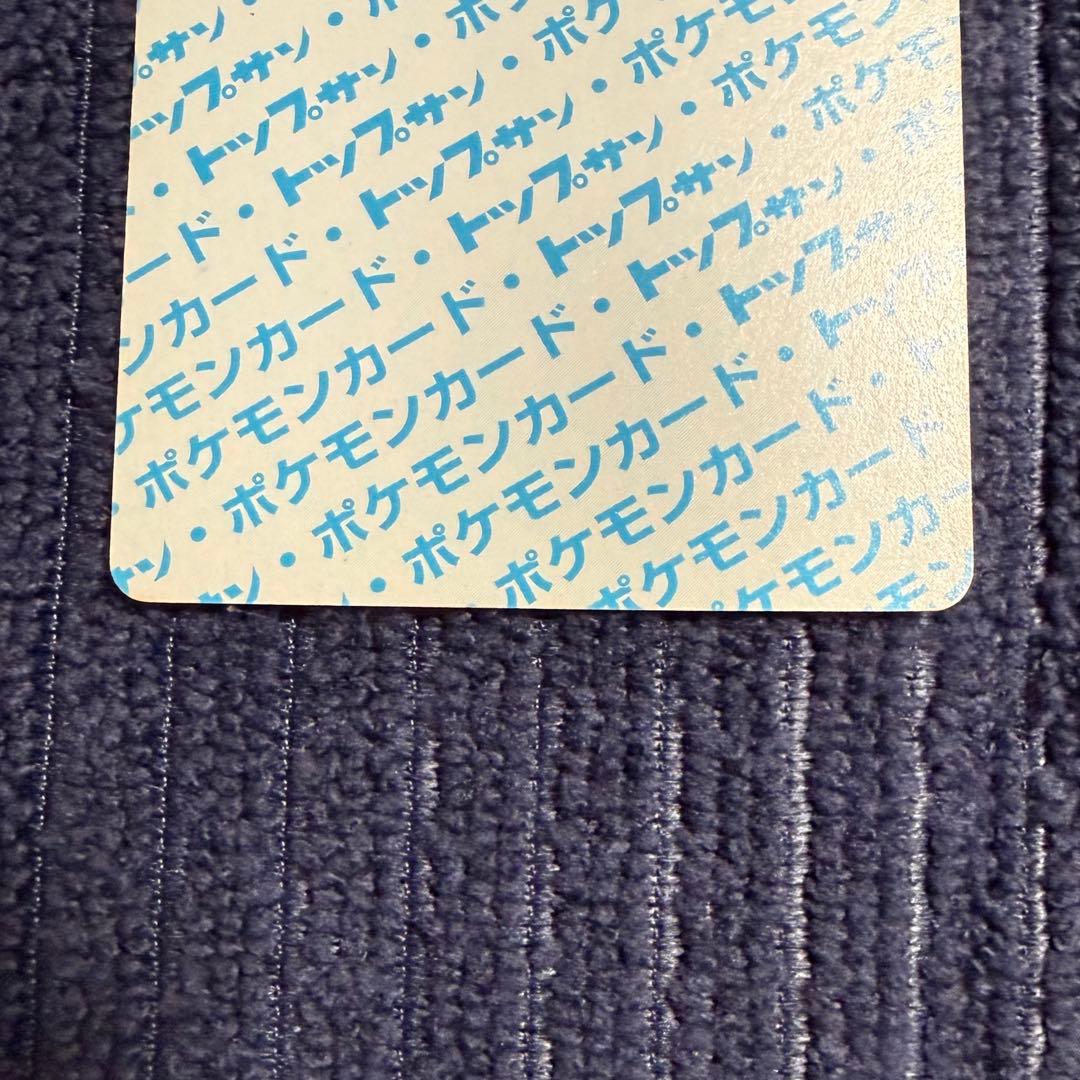 プサン・
トップサン・ポ
・トップサン・ポケ
ード・トップサン・ポケモ
ンカード・トップサン・ポケモン
ケモンカード・トップサン・ポケモン
・ポケモンカード・トップサン・ポケモ
ン・ポケモンカード・トップサン・ポ
サン・ポケモンカード・トップサン
・ポケモンカード・トップ
ポケモンカード・ト
ポケモンカード
ケモンカー
モン